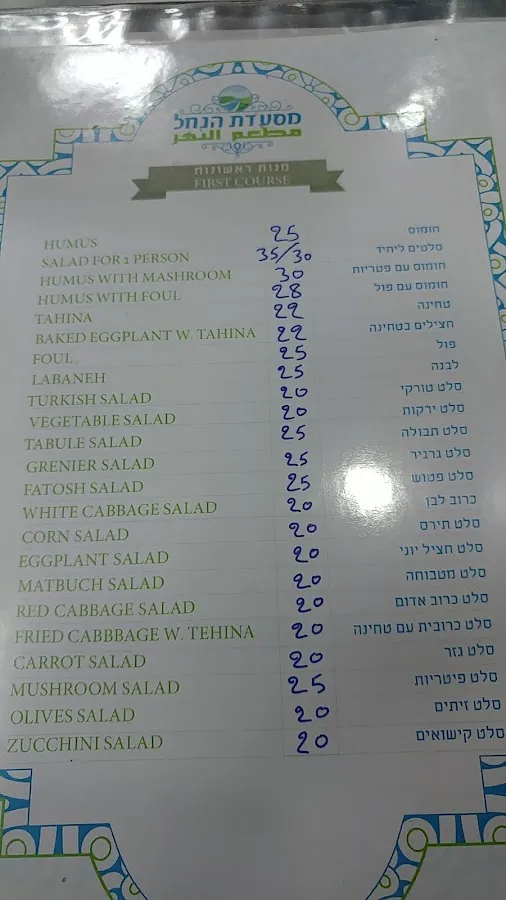 מסעדת הנחל
مطعم النهر
מנות ראשונות
FIRST COURSE
HUMUS 25 חומוס
SALAD FOR 1 PERSON 35/30 סלטים ליחיד
HUMUS WITH MASHROOM 30 חומוס עם פטריות
HUMUS WITH FOUL 28 חומוס עם פול
TAHINA 22 טחינה
BAKED EGGPLANT W. TAHINA 22 חצילים בטחינה
FOUL 25 פול
LABANEH 25 לבנה
TURKISH SALAD 20 סלט טורקי
VEGETABLE SALAD 20 סלט ירקות
TABULE SALAD 25 סלט תבולה
GRENIER SALAD 25 סלט גרגיר
FATOSH SALAD 25 סלט פטוש
WHITE CABBAGE SALAD 20 כרוב לבן
CORN SALAD 20 סלט תירס
EGGPLANT SALAD 20 סלט חציל יוני
MATBUCH SALAD 20 סלט מטבוחה
RED CABBAGE SALAD 20 סלט כרוב אדום
FRIED CABBBAGE W. TEHINA 20 סלט כרובית עם טחינה
CARROT SALAD 20 סלט גזר
MUSHROOM SALAD 25 סלט פיטריות
OLIVES SALAD 20 סלט זיתים
ZUCCHINI SALAD 20 סלט קישואים